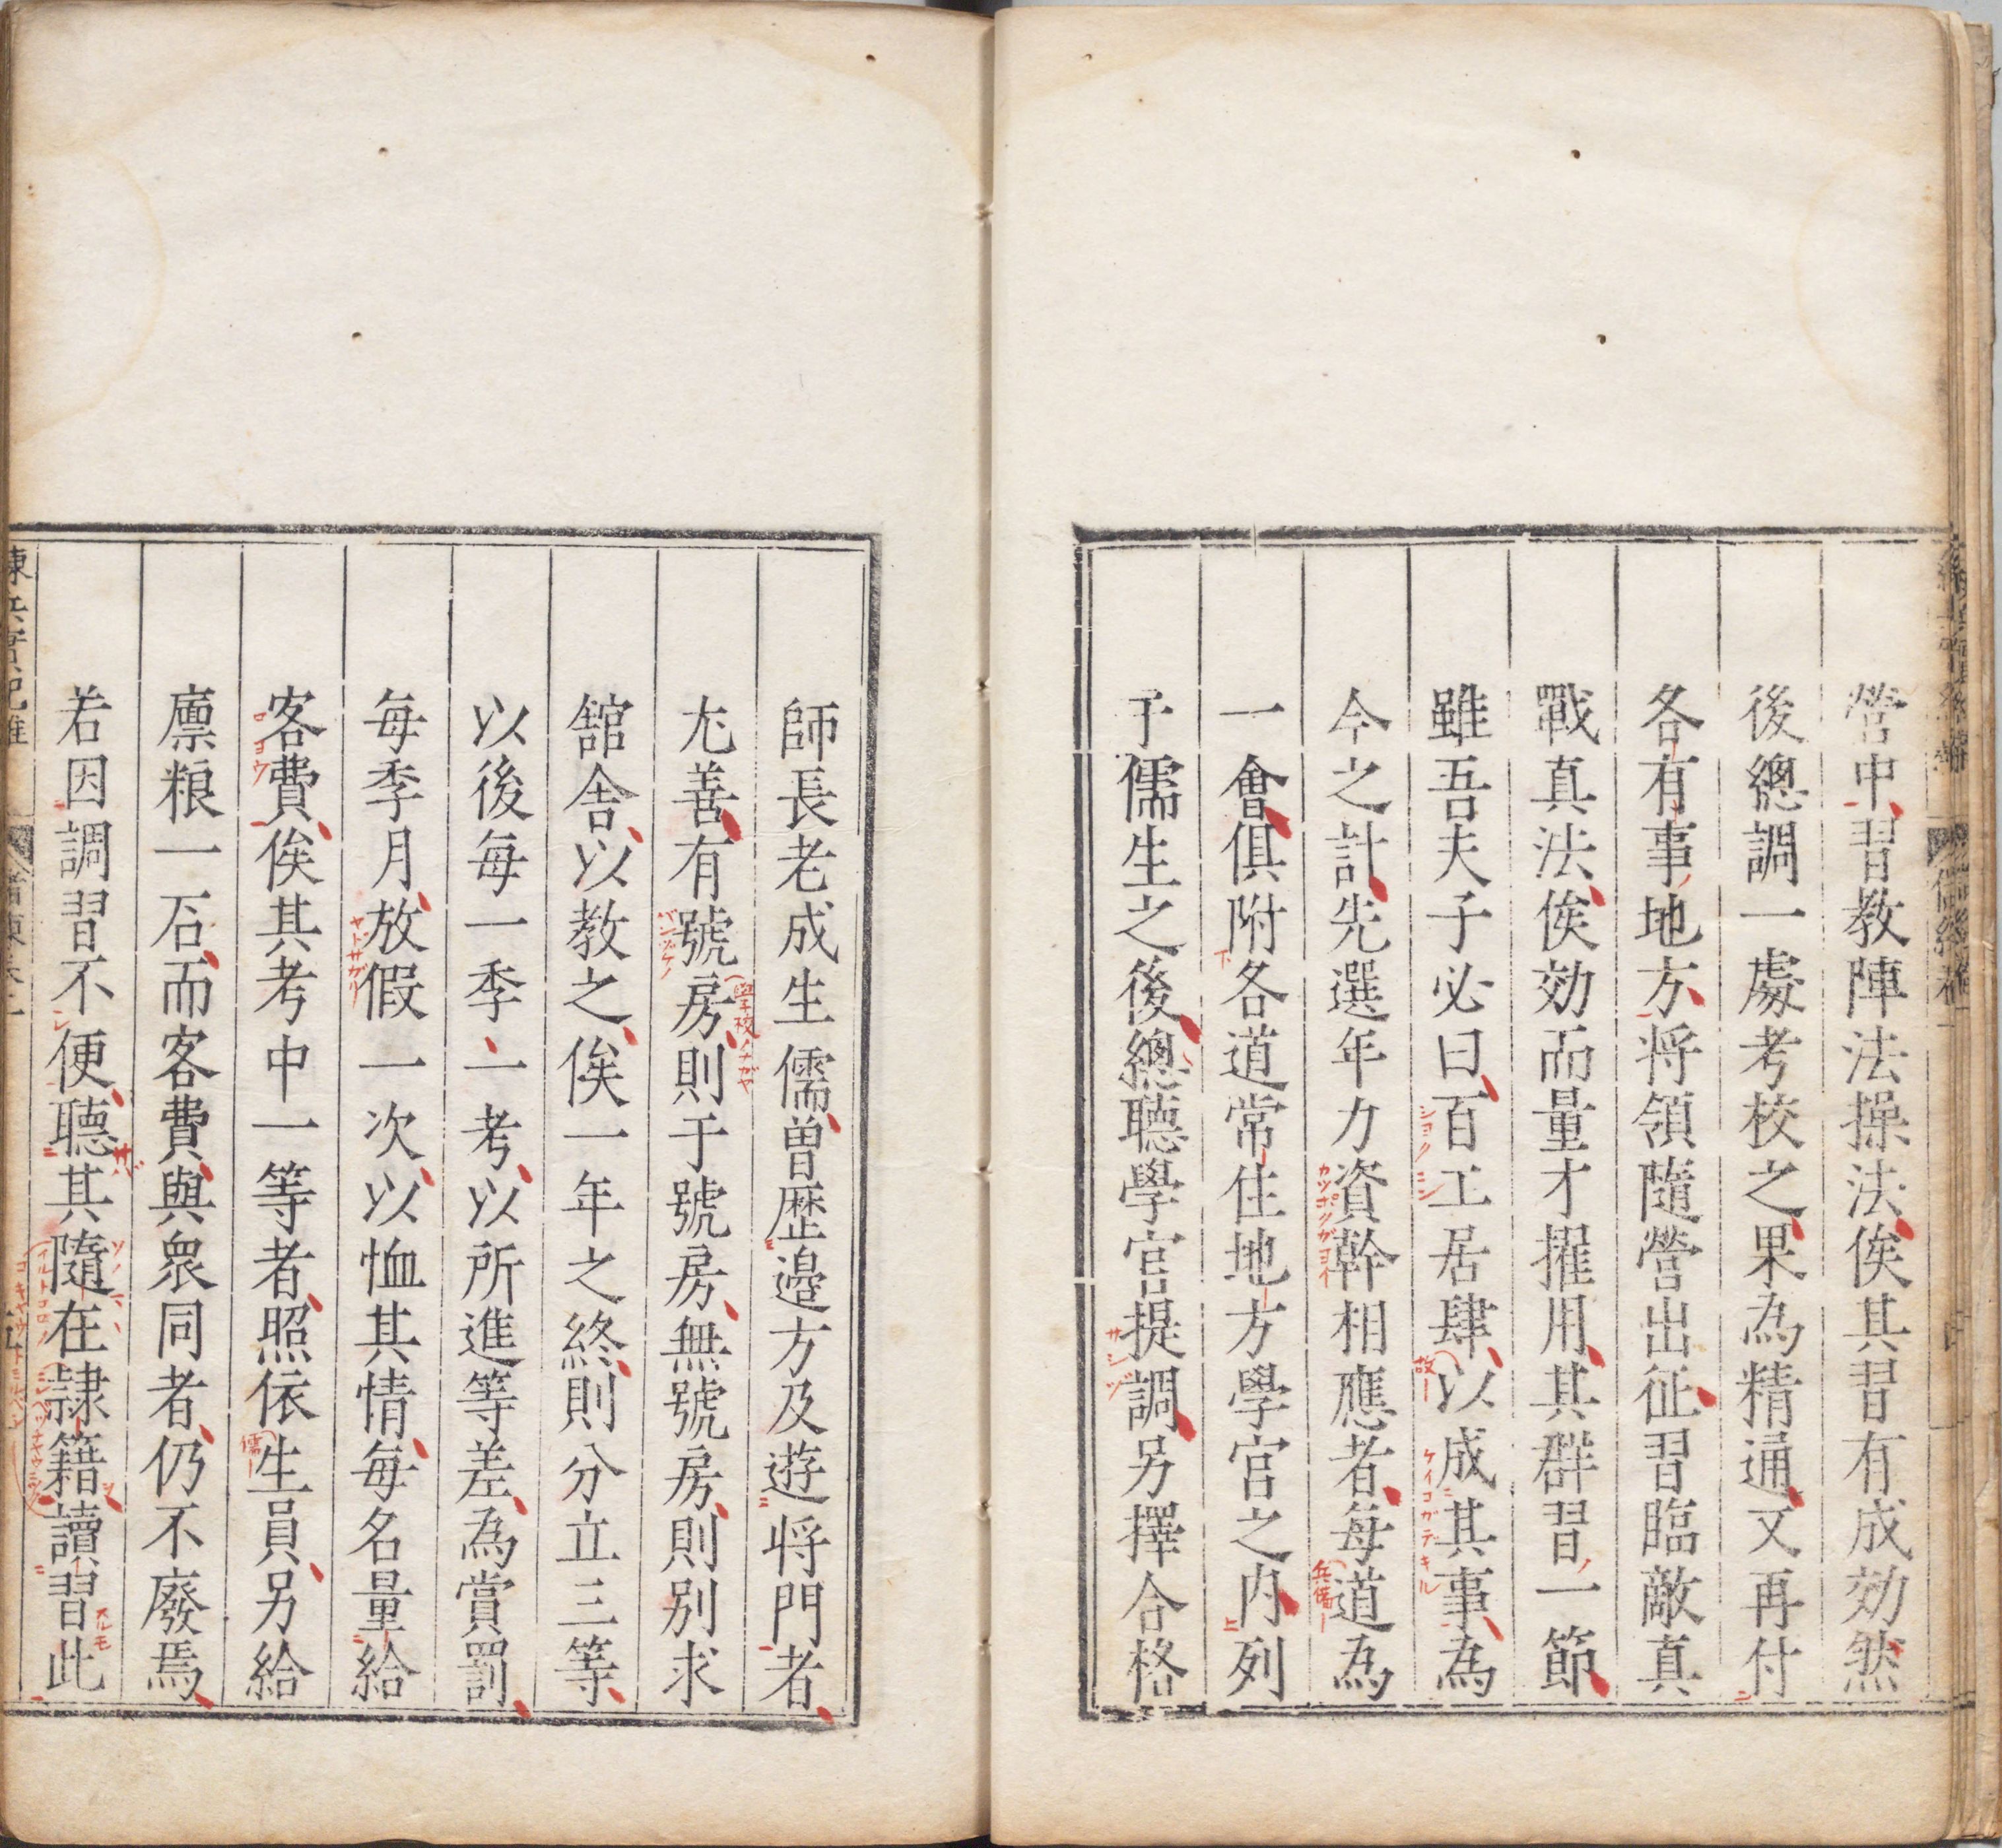 營中習教陣法操法俟其習有成効然
後總調一處考校之果為精通又再付
各有事地方將領隨營出征習臨敵真
戰真法俟効而量才擢用其群習一節
雖吾夫子必曰百工居肆以成其事為
今之計先選年力資幹相應者每道為
一會俱附各道常住地方學宮之内列
于儒生之後總聽學官提調另擇合格
師長老成生儒曽歴邉方及遊将門者
尤善有號房則于號房無號房則別求
舘舎以教之俟一年之終則分立三等
以後每一季一考以所進等差為賞罰
每季月放假一次以恤其情每名量給
客費俟其考中一等者照依生員另給
廪粮一石而客費與衆同者仍不廢焉
若因調習不便聽其隨在隷籍讀習此